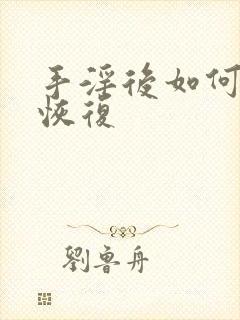 手淫後如何
恢復
劉魯舟